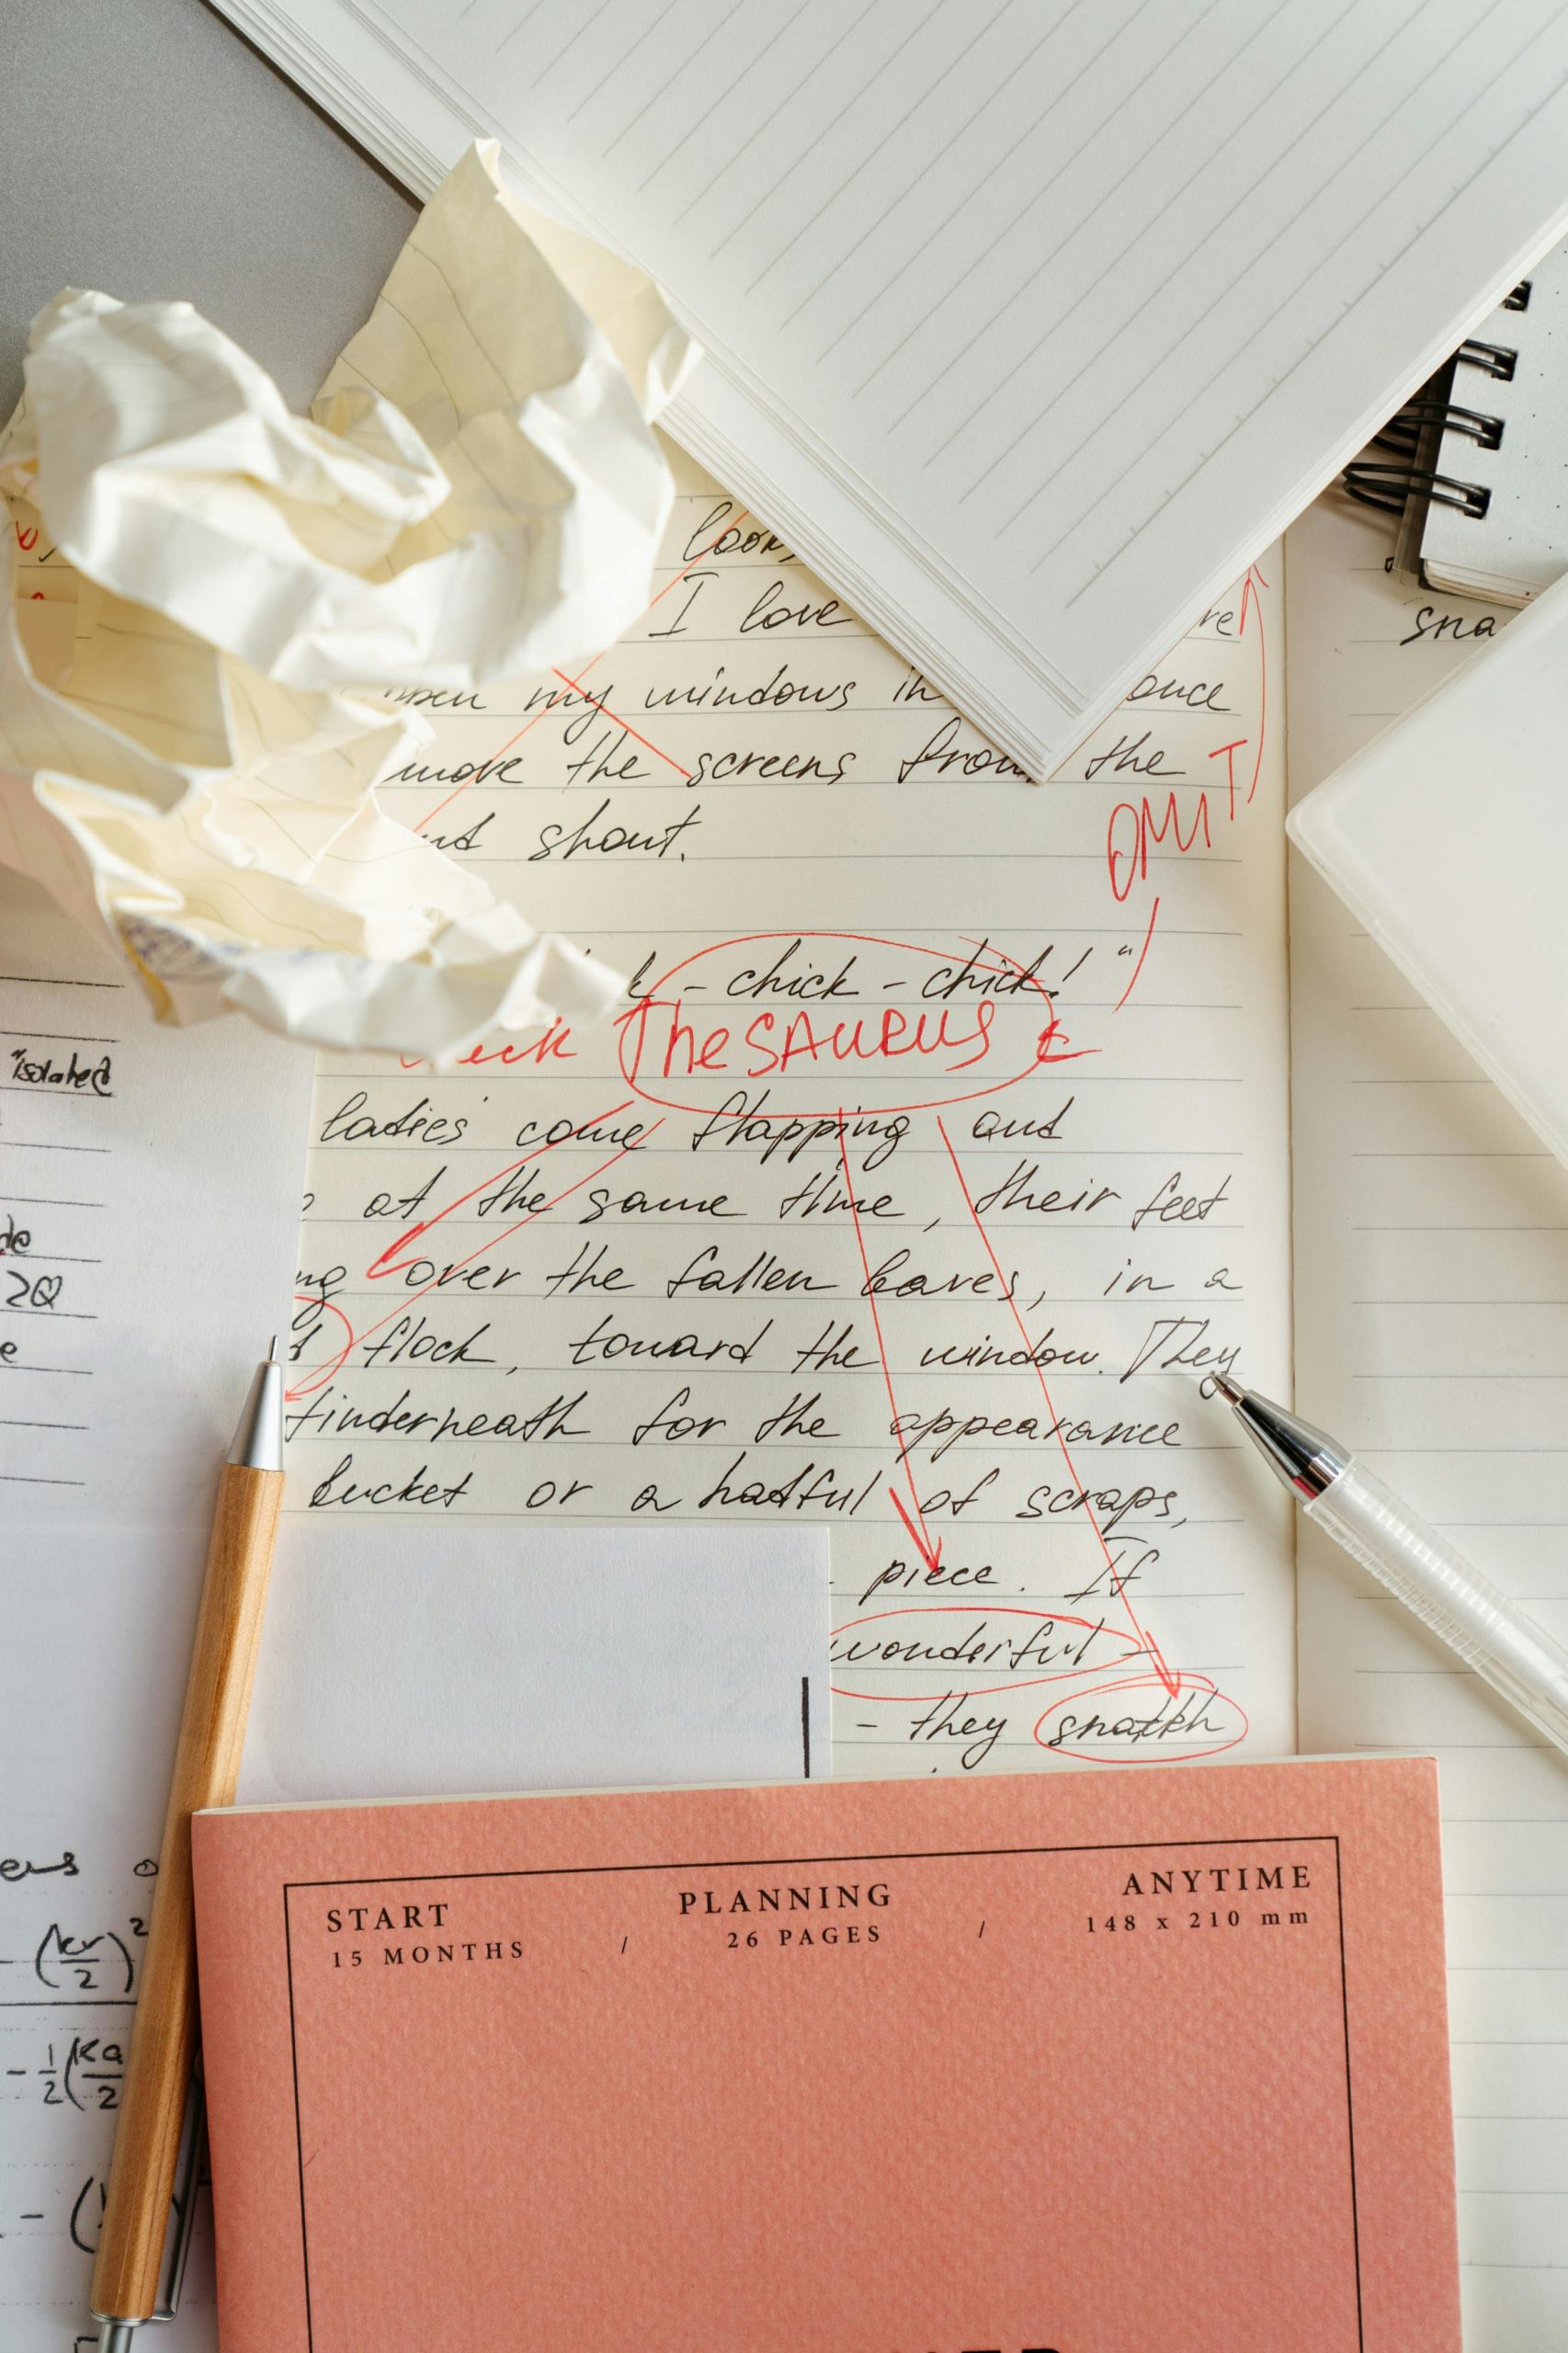 look
I love
my windows in
move the screens from the
shout.
OMIT
- chick - chick! "
THESAURUS
ladies come flapping and
at the same time, their feet
over the fallen leaves, in a
flock, toward the window. They
underneath for the appearance
bucket or a hatful of scraps,
piece. If
wonderful -
- they snatch
sna
"isolated
2Q
(kr/2)²
- 1/2(Ka/2
- (
START
15 MONTHS /
PLANNING
26 PAGES /
ANYTIME
148 x 210 mm